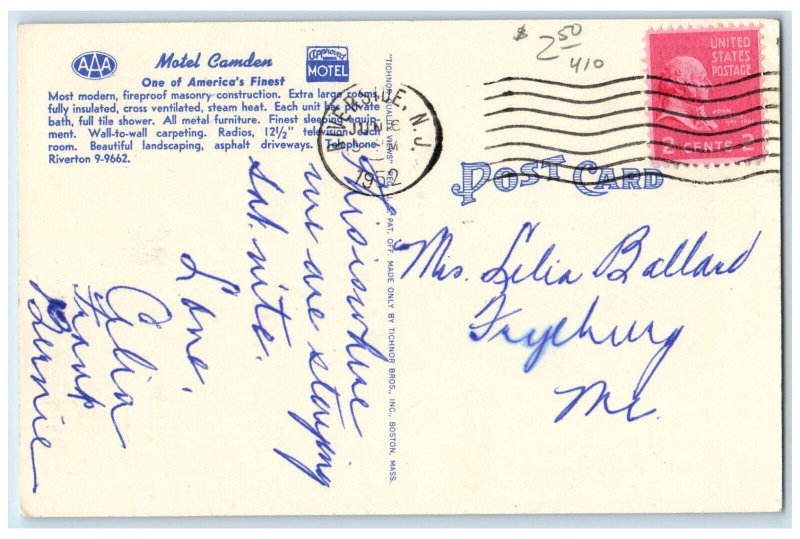 AAA
Motel Camden
One of America's Finest
Approved
MOTEL
Most modern, fireproof masonry construction. Extra large rooms,
fully insulated, cross ventilated, steam heat. Each unit has private
bath, full tile shower. All metal furniture. Finest sleeping equip-
ment. Wall-to-wall carpeting. Radios, 12½" television each
room. Beautiful landscaping, asphalt driveways. Telephone-
Riverton 9-9662.
This is where
we are staying
Sat. nite.
Love,
Celia
Frank
Bernie
"TICHNOR QUALITY VIEWS" REG. U. S. PAT. OFF. MADE ONLY BY TICHNOR BROS., INC., BOSTON, MASS.
RIVERSIDE, N. J.
JUN 8
PM
1952
$ 2 50
410
UNITED
STATES
POSTAGE
JOHN
2 CENTS 2
POST CARD
Mrs. Lelia Ballard
Fryeburg
Me.